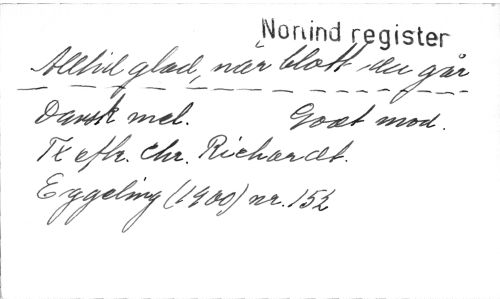 Norind register
Alltid glad, när blott du går
Dansk mel. Godt mod.
Tx efter. Chr. Richardt.
Eggeling (1900) nr. 152